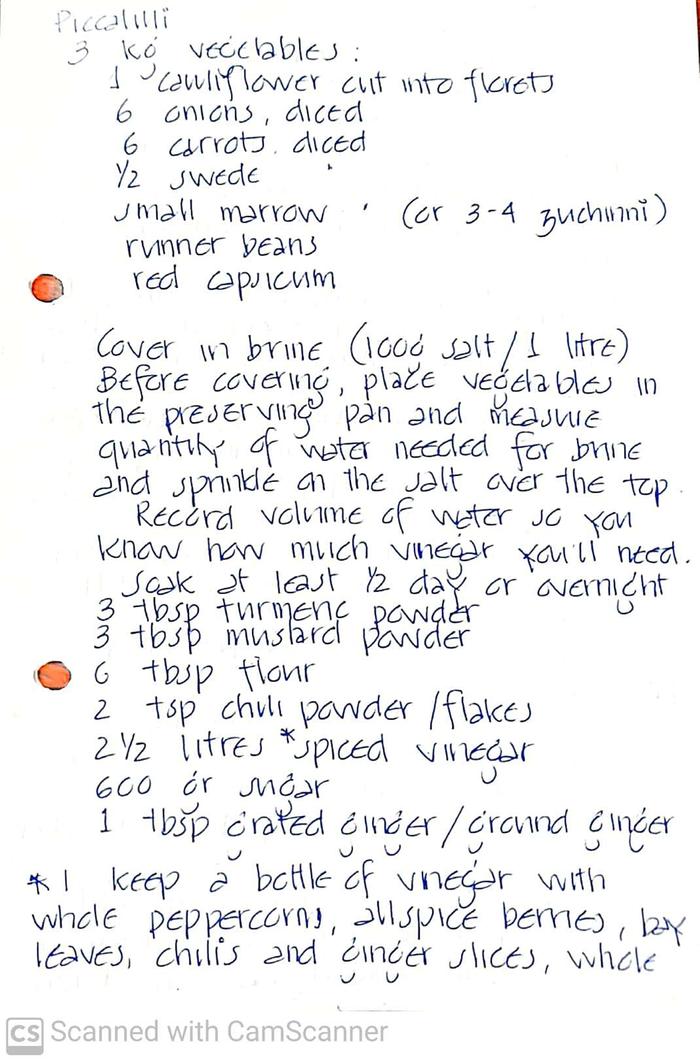 Piccalilli
3 kg vegetables:
1 cauliflower cut into florets
6 onions, diced
6 carrots. diced
1/2 swede
small marrow (or 3-4 zuchinni)
runner beans
red capsicum
Cover in brine (100g salt/1 litre)
Before covering, place vegetables in
the preserving pan and measure
quantity of water needed for brine
and sprinkle on the salt over the top.
Record volume of water so you
know how much vinegar you'll need.
Soak at least 1/2 day or overnight
3 tbsp turmeric powder
3 tbsp mustard powder
6 tbsp flour
2 tsp chili powder/flakes
2 1/2 litres *spiced vinegar
600 gr sugar
1 tbsp grated ginger/ground ginger
* I keep a bottle of vinegar with
whole peppercorns, allspice berries, bay
leaves, chilis and ginger slices, whole
CS Scanned with CamScanner